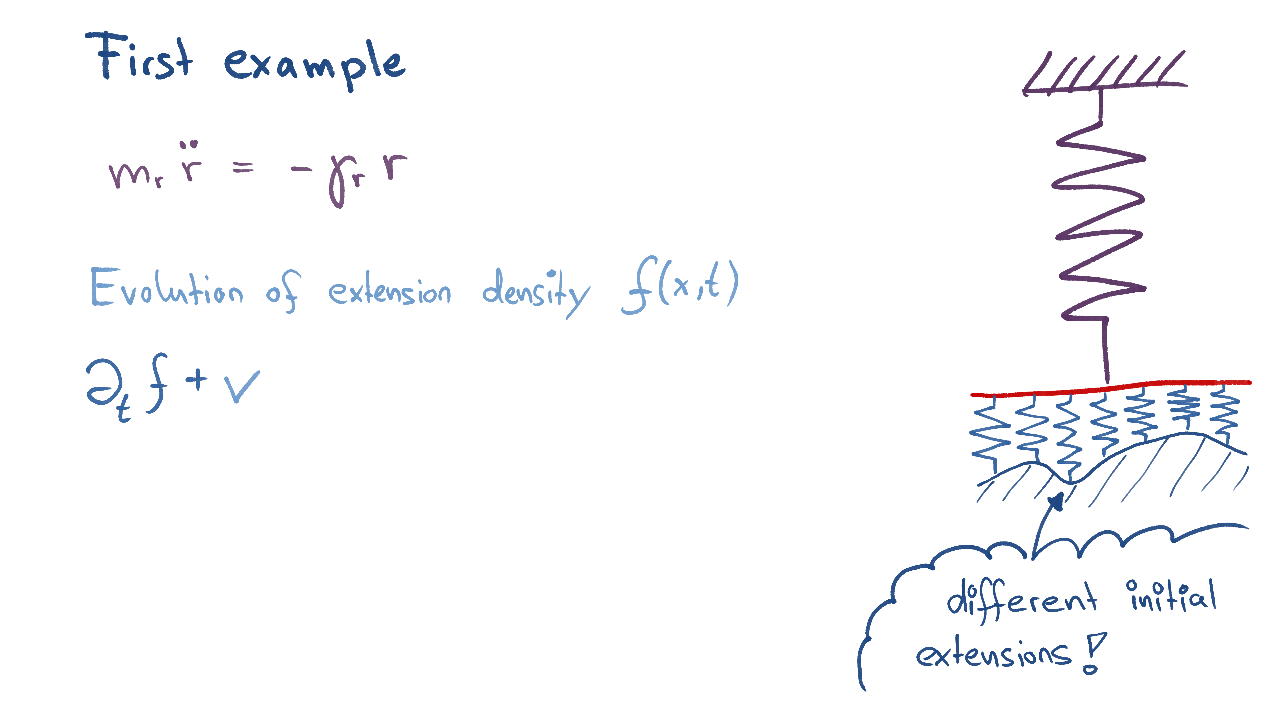 First example
mᵣ r̈ = - γᵣ r
Evolution of extension density f(x,t)
∂ₜ f + v
different initial
extensions!